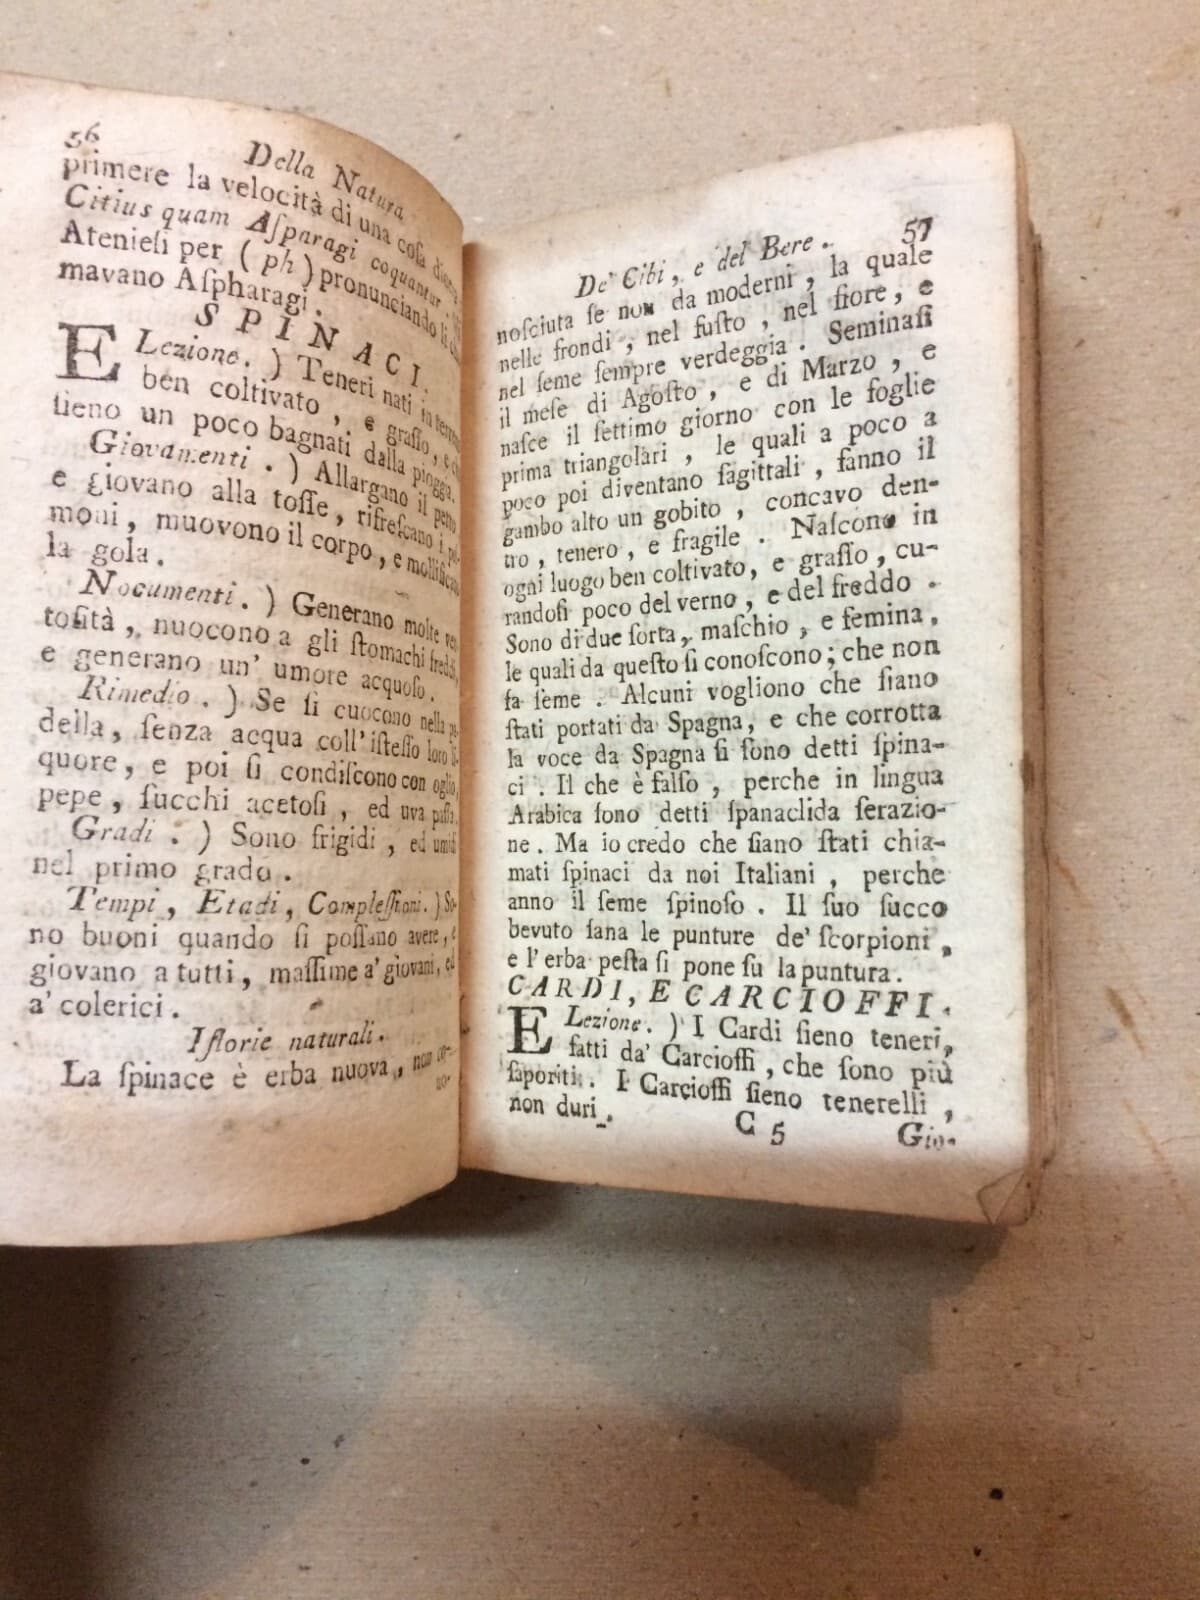 56
Della Natura
primere la velocità di una coſa
Citius quam Aſparagi coquantur.
Atenieſi per ( ph ) pronunciando li
mavano Aſpharagi.
SPINACI.
ELezione. ) Teneri nati in
ben coltivato, e graſſo, e
ſieno un poco bagnati dalla pioggia.
Giovamenti. ) Allargano il petto
e giovano alla toſſe, rifreſcano i
moni, muovono il corpo, e
la gola.
Nocumenti. ) Generano molte
toſità, nuocono a gli ſtomachi freddi,
e generano un' umore acquoſo.
Rimedio. ) Se ſi cuocono nella
della, ſenza acqua coll' iſteſſo loro li-
quore, e poi ſi condiſcono con oglio,
pepe, ſucchi acetoſi, ed uva paſſa.
Gradi. ) Sono frigidi, ed umidi
nel primo grado.
Tempi, Etadi, Compleſſioni. ) So-
no buoni quando ſi poſſano avere, e
giovano a tutti, maſſime a' giovani, ed
a' colerici.
Iſtorie naturali.
La ſpinace è erba nuova, non co-
no-
57
De' Cibi, e del Bere.
noſciuta ſe non da moderni, la quale
nelle frondi, nel fuſto, nel fiore, e
nel ſeme ſempre verdeggia. Seminaſi
il meſe di Agoſto, e di Marzo, e
naſce il ſettimo giorno con le foglie
prima triangolari, le quali a poco a
poco poi diventano ſagittali, fanno il
gambo alto un gobito, concavo den-
tro, tenero, e fragile. Naſcono in
ogni luogo ben coltivato, e graſſo, cu-
randoſi poco del verno, e del freddo.
Sono di due ſorta, maſchio, e femina,
le quali da queſto ſi conoſcono; che non
fa ſeme. Alcuni vogliono che ſiano
ſtati portati da Spagna, e che corrotta
la voce da Spagna ſi ſono detti ſpina-
ci. Il che è falſo, perche in lingua
Arabica ſono detti ſpanaclida ſerazio-
ne. Ma io credo che ſiano ſtati chia-
mati ſpinaci da noi Italiani, perche
anno il ſeme ſpinoſo. Il ſuo ſucco
bevuto ſana le punture de' ſcorpioni,
e l' erba peſta ſi pone ſu la puntura.
CARDI, E CARCIOFFI.
ELezione. ) I Cardi ſieno teneri,
fatti da' Carcioffi, che ſono più
ſaporiti. I Carcioffi ſieno tenerelli,
non duri.
C 5
Gio-